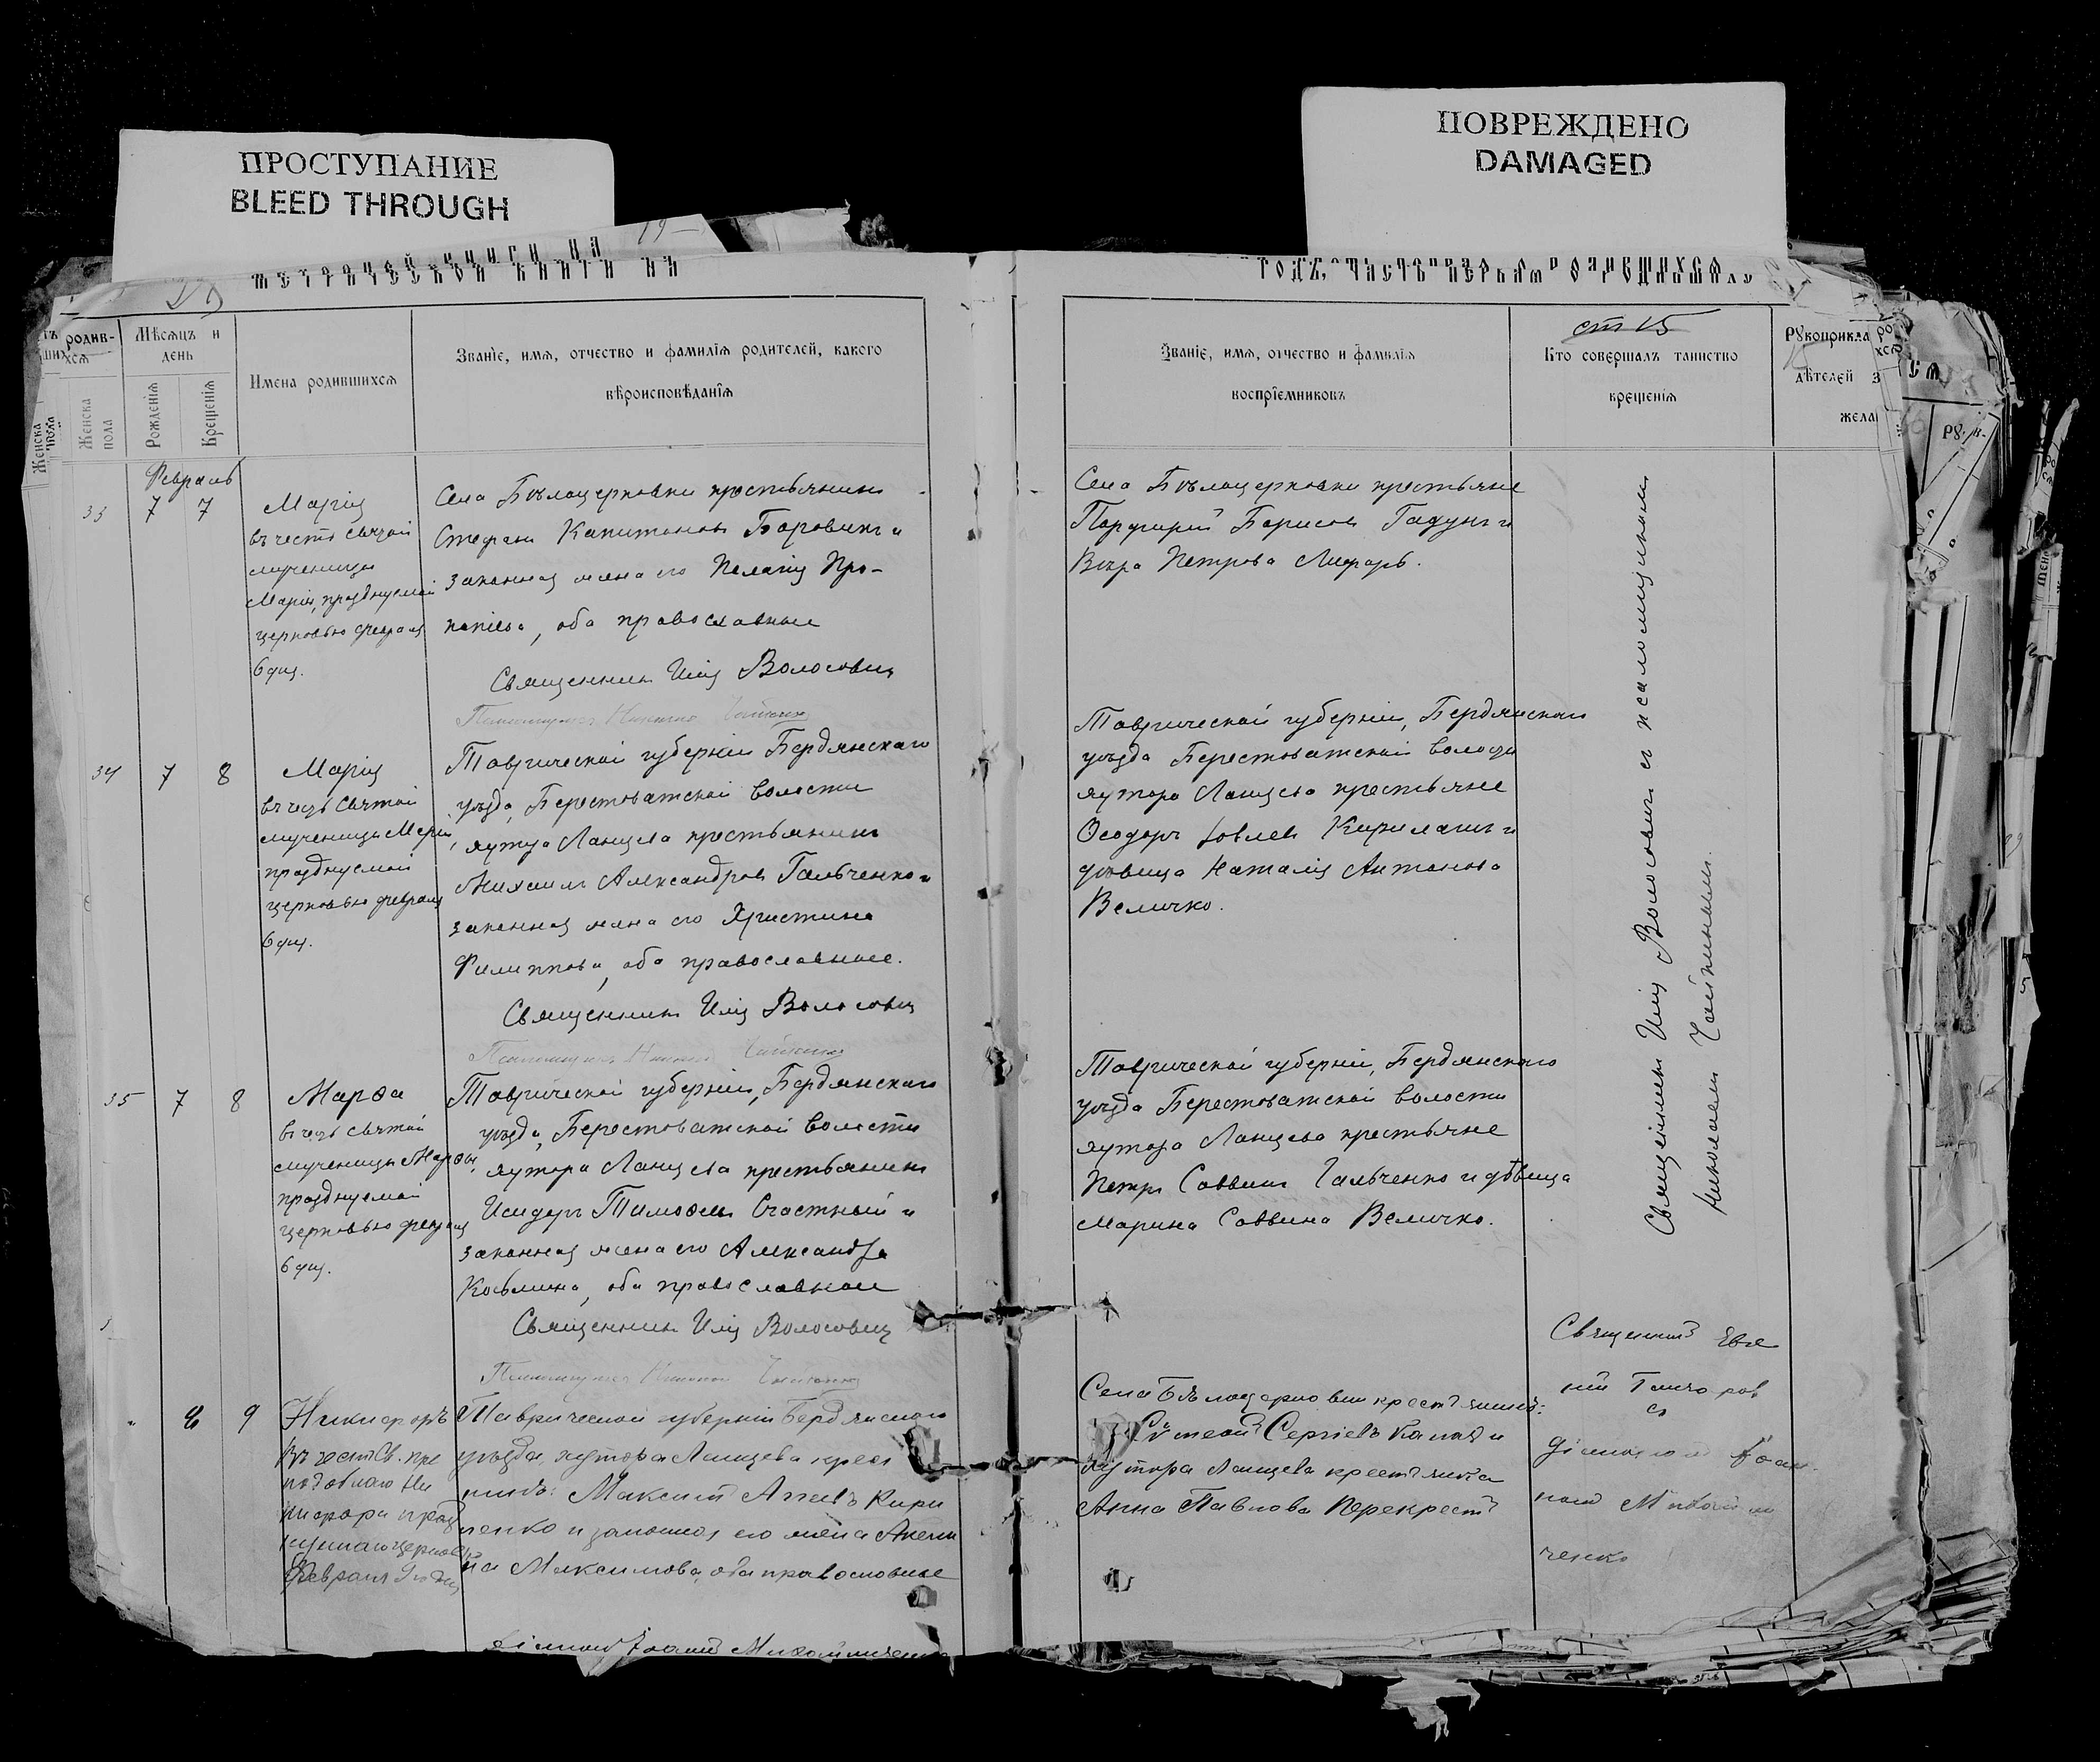 ПРОСТУПАНИЕ
BLEED THROUGH
ПОВРЕЖДЕНО
DAMAGED
МЕТРИЧЕСКОЙ КНИГИ НА
ГОДЪ, ЧАСТЬ ПЕРВАЯ О РОДИВШИХСЯ
родив-
шихся
Женска
пола
Мѣсяцъ и
день
Рожденія
Крещенія
Имена родившихся
Званіе, имя, отчество и фамилія родителей, какого
вѣроисповѣданія
Званіе, имя, отчество и фамилія
воспріемниковъ
ст 15
Кто совершалъ таинство
крещенія
Рукоприкла
дѣтелей
жела
Февраль
33 7 7
Марія
въ честь святой
мученицы
Маріи, празднуемой
церковью февраля
6 дня.
Села Бѣлоцерковки крестьянинъ
Стефанъ Капитоновъ Боровикъ и
законная жена его Пелагія Про-
копіева, оба православные
Священникъ Илія Волосовичъ
Села Бѣлоцерковки крестьяне
Порфирій Борисовъ Гадунъ и
Вѣра Петрова Лифарь.
34 7 8
Марія
въ честь святой
мученицы Маріи,
празднуемой
церковью февраля
6 дня.
Таврической губерніи Бердянскаго
уѣзда, Берестоватской волости
хутора Ланцева крестьянинъ
Михаилъ Александровъ Гальченко и
законная жена его Христина
Филиппова, оба православные.
Священникъ Илія Волосовичъ
Таврической губерніи, Бердянскаго
уѣзда Берестоватской волости
хутора Ланцева крестьяне
Ѳеодоръ Іовлевъ Кириленко и
дѣвица Наталія Антонова
Величко.
35 7 8
Марѳа
въ честь святой
мученицы Марѳы,
празднуемой
церковью февраля
6 дня.
Таврической губерніи, Бердянскаго
уѣзда, Берестоватской волости
хутора Ланцева крестьянинъ
Исидоръ Тимоѳеевъ Счастный и
законная жена его Александра
Козьмина, оба православные
Священникъ Илія Волосовичъ
Таврической губерніи, Бердянскаго
уѣзда Берестоватской волости
хутора Ланцева крестьяне
Петръ Саввинъ Гальченко и дѣвица
Марина Саввина Величко.
Священникъ Илія Волосовичъ съ псаломщикомъ
Николаемъ
8 9
Никифоръ
въ честь Св. пре
подобнаго Ни
кифора празд
нуемаго церковью
Февраля 9го дня
Таврической губерніи Бердянскаго
уѣзда, хутора Ланцева крест
Максимъ Кири
ленко и законная его жена Акили
на Максимова, оба православные
Іоаннъ Михайличенко
Села Бѣлоцерковки крестьянинъ:
Сѵмеонъ Сергіевъ и
хутора Ланцева крестьянка
Анна Павлова Перекрестъ
Священникъ Евге
ній Гончаровъ
съ
Іоан-
номъ Михайли
ченко